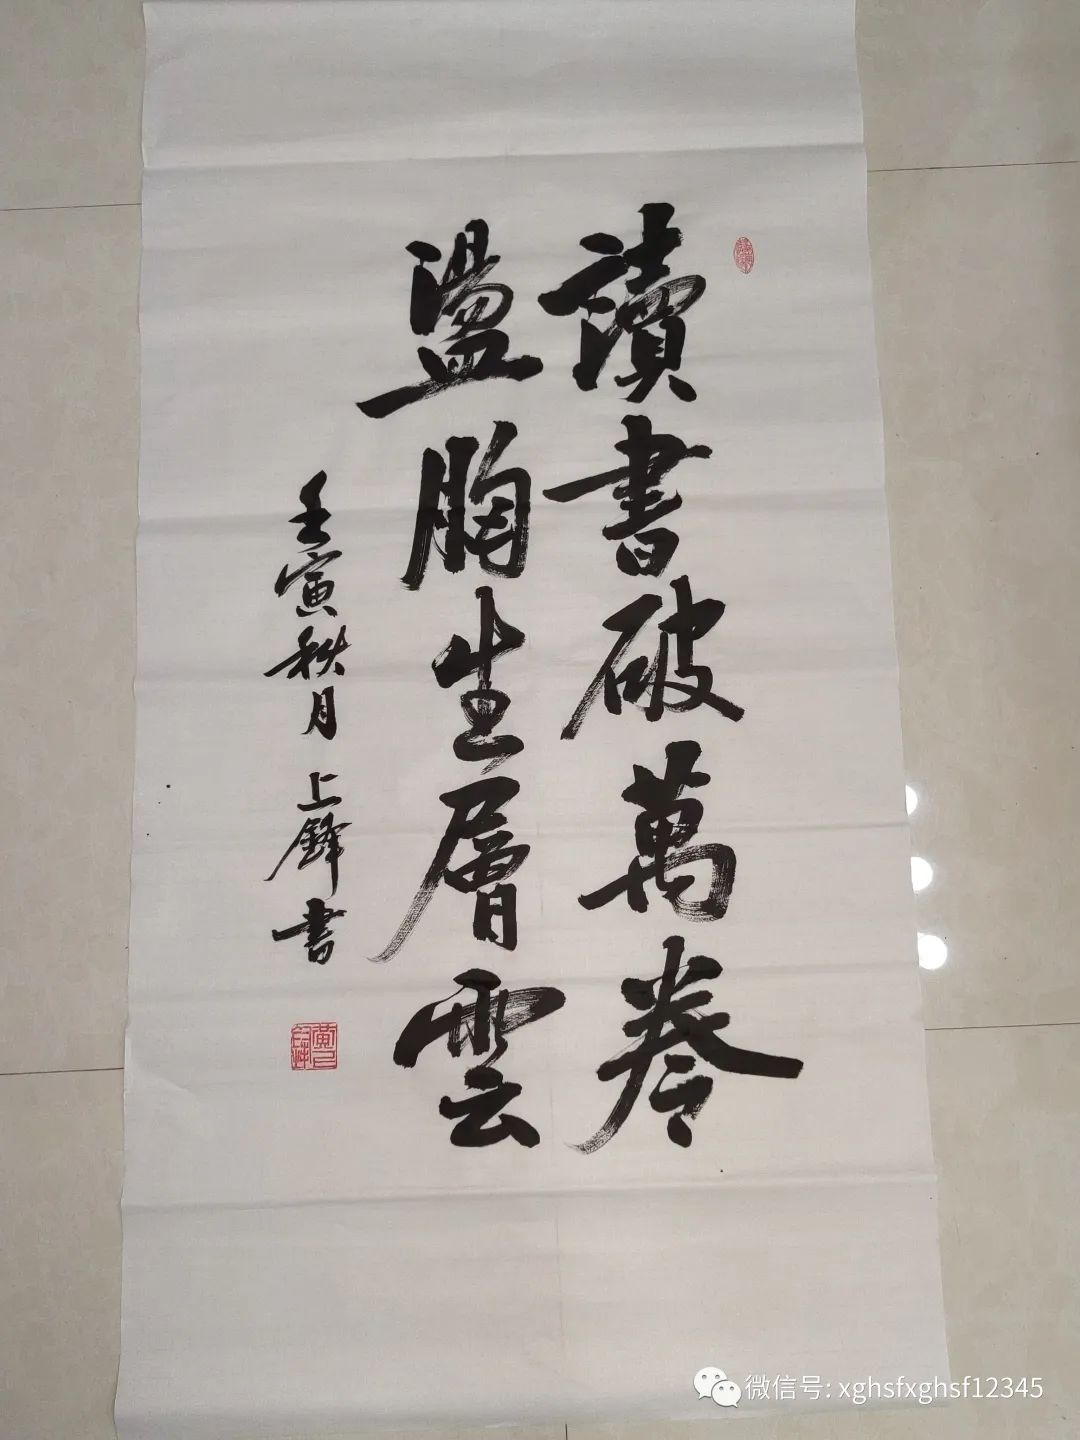 讀書破萬卷
盪胸生層雲
壬寅秋月 上鋒書
微信号: xghsfxghsf12345